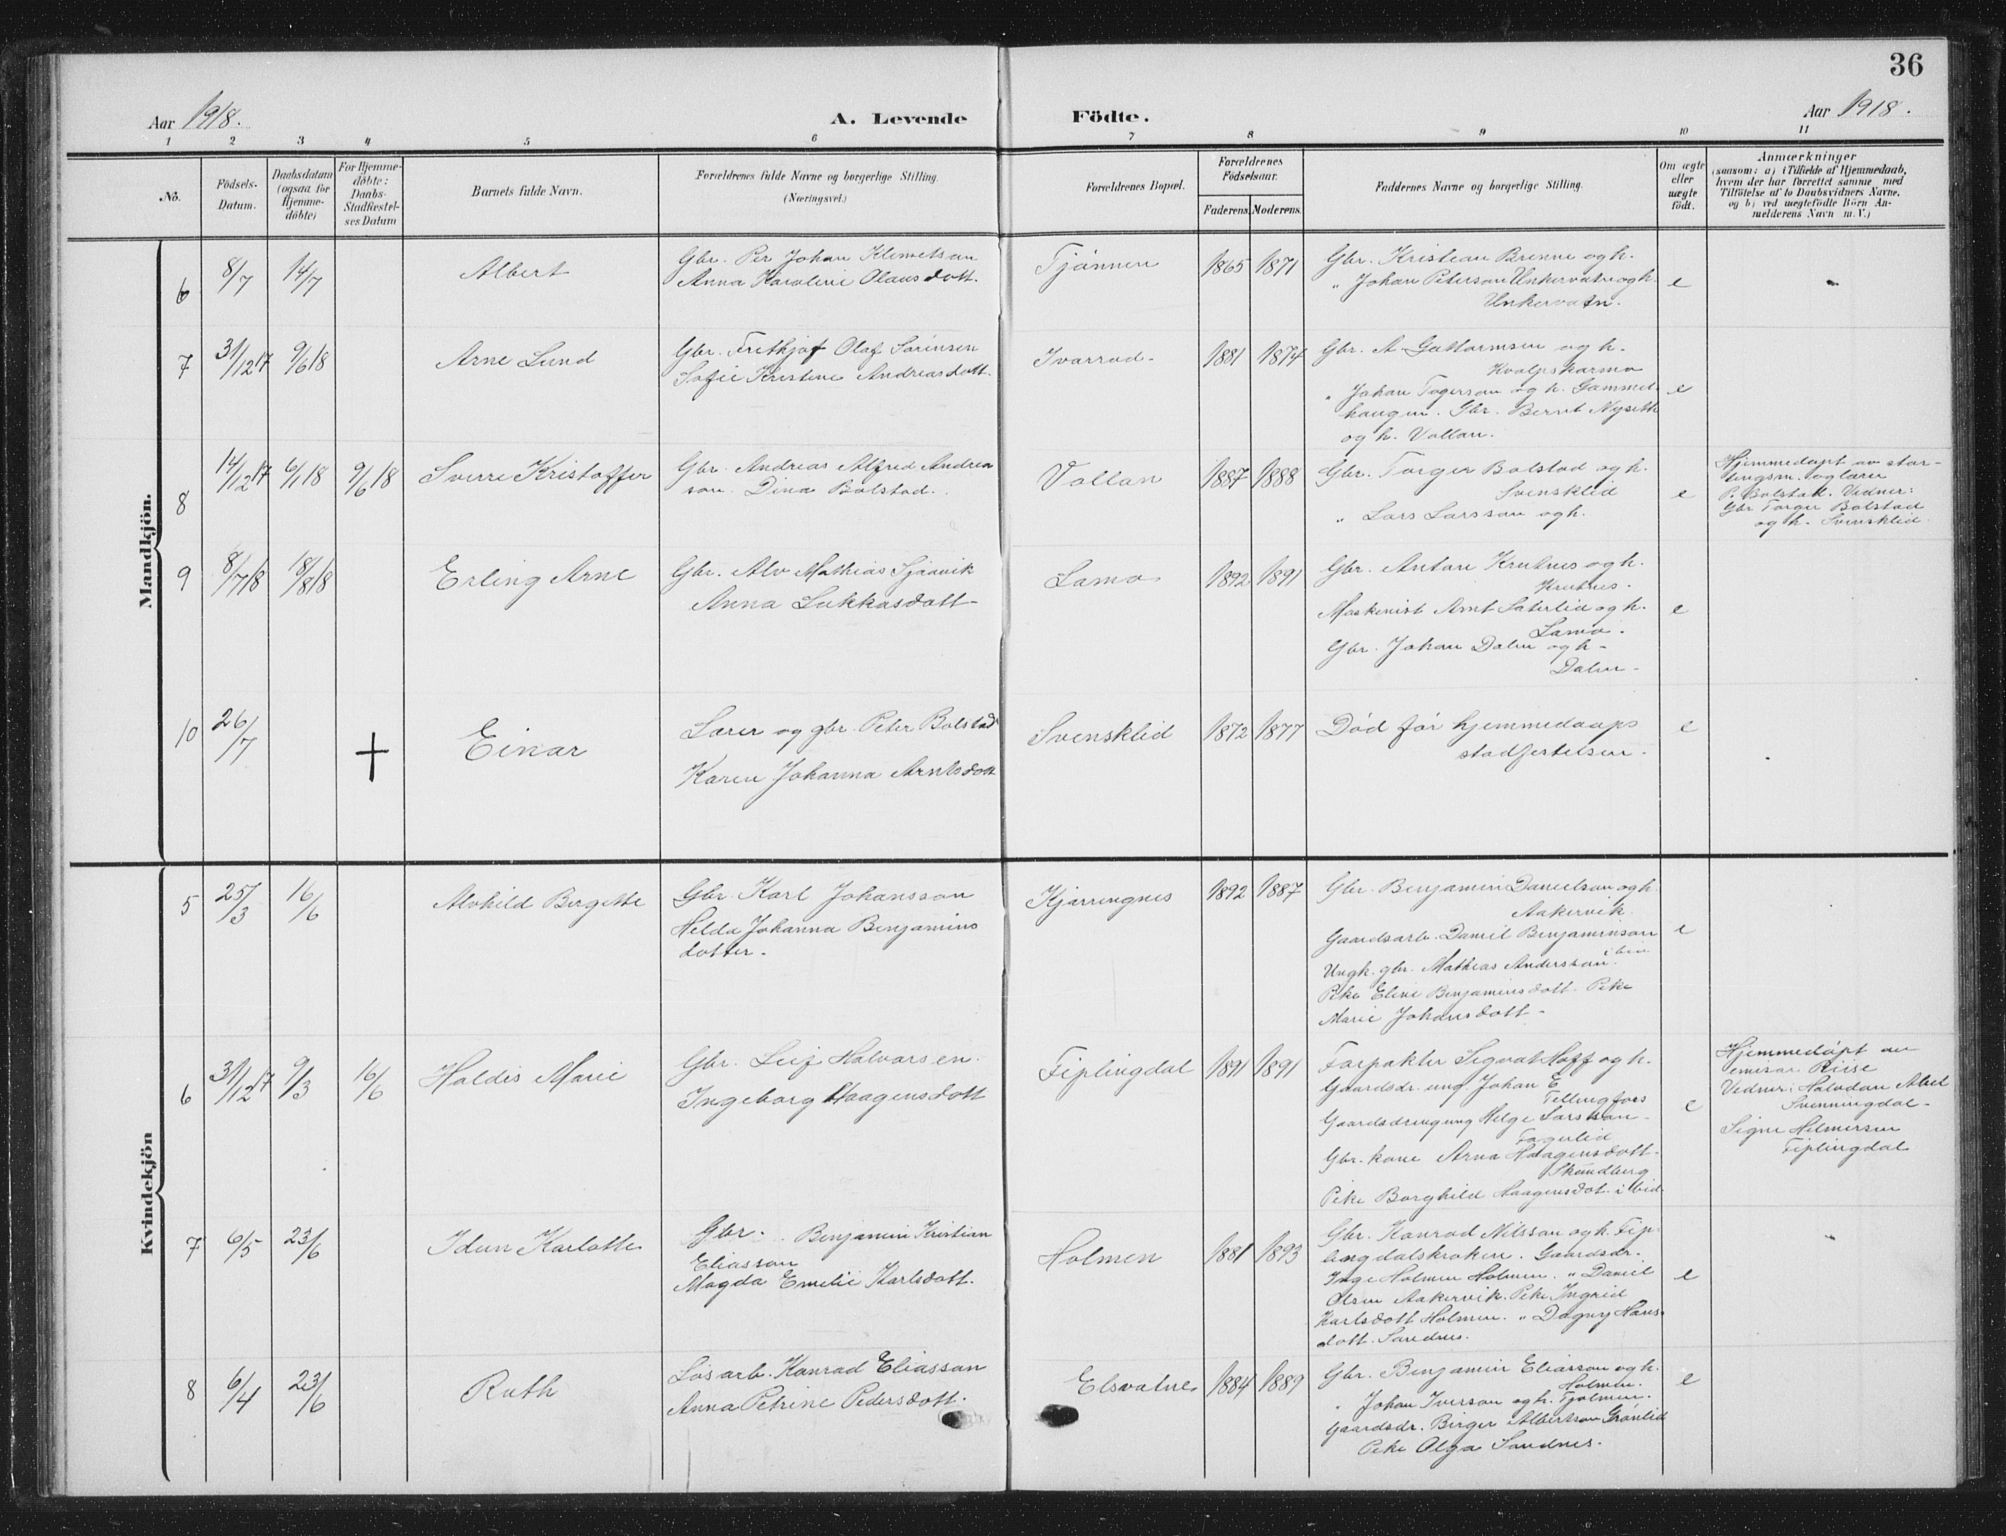 36
Aar 1918.
A. Levende Födte.
Aar 1918.
1 2 3 4 5 6 7 8 9 10 11
No.
Födsels-
Datum.
Daabsdatum
(ogsaa for
Hjemme-
döbte)
For Hjemme-
döbte:
Daabs-
Stadfæstel-
ses Datum
Barnets fulde Navn.
Forældrenes fulde Navne og borgerlige Stilling.
(Næringsvei.)
Forældrenes Bopæl.
Forældrenes
Födselsaar.
Faderens. Moderens.
Faddernes Navne og borgerlige Stilling.
Om ægte
eller
uægte
født.
Anmærkninger
(saasom: a) i Tilfælde af Hjemmedaab,
hvem der har forrettet samme, med
Tilföielse af to Daabsvidners Navne,
og b) ved uægtefödte Börn An-
melderens Navn m.V.)
Mandkjön.
6 8/7 14/7 Albert
Gbr. Per Johan Klemetsan
Anna Karoline Olausdott.
Tjönnen 1865 1871
Gbr. Kristian Brenne og h.
" Johan Peterson Unkervatn og h.
Unkervatn.
e
7 31/12 17 9/6 18 Arne Lund
Gbr. Fritkjof Olaf Sörensen
Sofie Kristine Andreasdott.
Ivarrud. 1881 1874
Gbr. A Guttormsen og h.
Kvalpskarmo
" Johan Togerson og h. Gammel-
haugen. Gbr. Bernt Nyseth
og h. Vollan.
e
8 14/12 17 6/1 18 9/6 18 Sverre Kristoffer
Gbr. Andreas Alfred Andrea
son. Dina Bolstad.
Vollan 1887 1888
Gbr. Torger Bolstad og h.
Svensklid
" Lars Larsson og h.
e
Hjemmedøpt av stor-
tingsm. og lærer
P. Bolstad. Vidner:
Gbr Torger Bolstad
og h. Svensklid.
9 8/7 18 18/8 18 Erling Arne
Gbr. Alv Mathias Sjaavik
Anna Lukkasdott-
Lamo 1892 1891
Gbr. Antan Krutnes og h.
Krutnes.
Maskinist Arnt Säterlid og h.
Lamo.
Gbr. Johan Dalen og h-
Dalen-
e
10 26/7 † Einar
Lærer og gbr. Peter Bolstad
Karen Johanna Arntsdott
Svensklid 1872 1877
Död før hjemmedaaps
stadfestelsen.
e
Kvindekjön
5 25/3 16/6 Alvhild Birgitte
Gbr. Karl Johansson
Helda Johanna Benjamins
dotter.
Kjärringnes 1892 1887
Gbr. Benjamin Danielson og h.
Aakervik.
Gaardsarb. Daniel Benjaminson
ibin
Ungk. gbr. Mathias Andersson.
Pike Eline Benjaminsdott. Pike
Marie Johansdott-
e
6 31/12 17 9/3 16/6 Haldis Marie
Gbr. Leif Halvorsen.
Ingeborg Haagensdott
Fiplingdal 1891 1891
Forpakter Sigvat Hoff og h.
Gaardsdr. ung. Johan E
Fellingfors
Gaardsdreng ung Helge Larsson-
Fagerlid
Gbr. kone Arna Haagensdott-
Skundberg
Pike Borghild Haagensdot. ibid.
e
Hjemmedöpt av
emisær Riise
Vedner: Halvdan Abel
Svenningdal-
Signe Hilmersen
Fiplingdal
7 6/5 23/6 Idun Karlotte
Gbr. Benjamin Kristian
Eliasson
Magda Emelie Karlsdott.
Holmen 1881 1893
Gbr. Konrad Nilsson og h. Fip-
lingdalskroken. Gaardsdr.
Inge Holmen Holmen. " Daniel
Olsen Aakervik. Pike Ingrid
Karlsdott Holmen. " Dagny Hans-
dott. Sandnes.
e
8 6/4 23/6 Ruth
Lösarb. Konrad Eliassan
Anna Petrine Pedersdott.
Elsvatnet 1884 1889
Gbr. Benjamin Eliasson og h.
Holmen.
" Johan Iverson og h. Fjolmen.
Gaardsdr. Birger Albertson Grönlid
Pike Olga Sandnes.
e